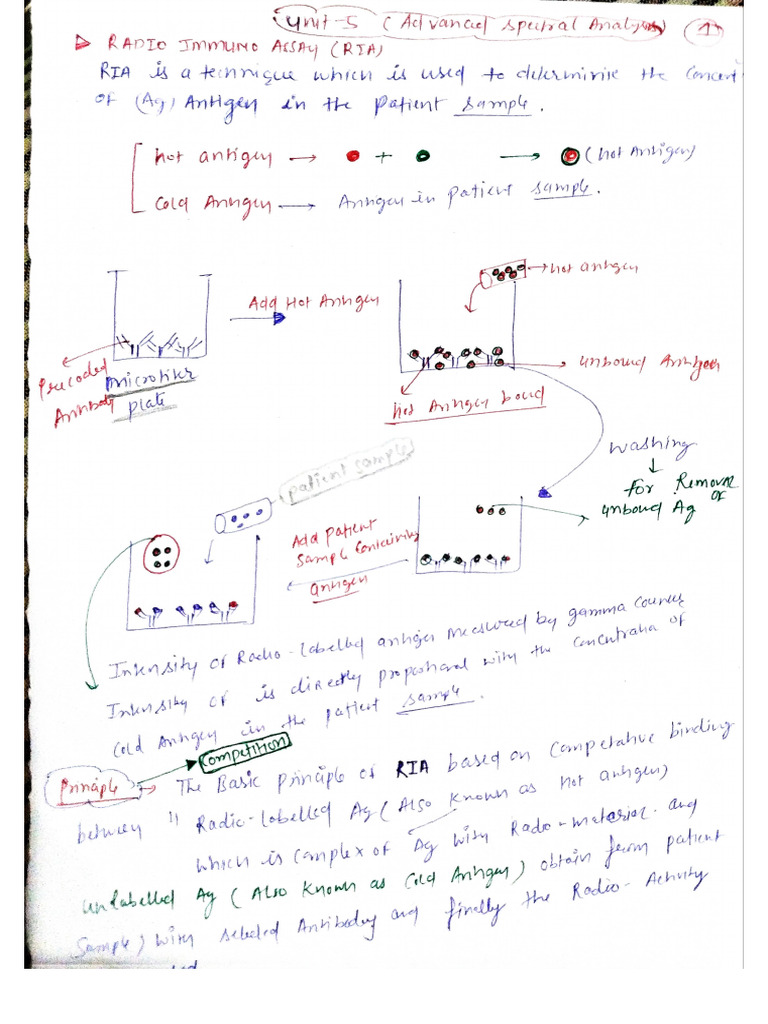 Unit-5 (Advanced Spectral Analysis) 1
RADIO IMMUNO ASSAY (RIA)
RIA is a technique which is used to determinine the concent
of (Ag) Antigen in the patient sample.
hot antigen → + → (hot Antigen)
Cold Antigen → Antigen in patient sample.
→ hot antigen
Add Hot Antigen
Precoded
Antibody
microtiter
plate
unbound Antigen
hot Antigen boud
washing
for Removal
of
unbound Ag
patient sample
Add patient
sample containing
antigen
Intensity of Radio-labelled antigen measured by gamma counter
Intensity of is directly proportional with the concentration of
Cold Antigen in the patient sample.
Competition
Principle → The Basic principle of RIA based on competative binding
between " Radio-labelled Ag (Also known as Hot antigen)
which is complex of Ag with Radio-material and
unlabelled Ag (Also known as Cold Antigen) obtain from patient
sample) with selected Antibody and finally the Radio-Activity